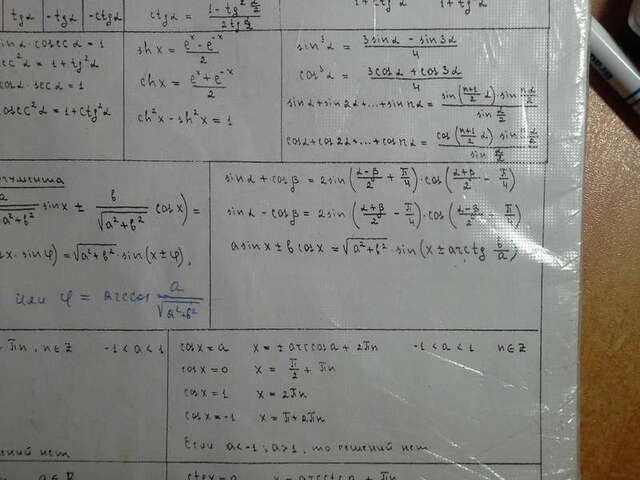 tgα | -tgα | -ctgα
ctgα = (1 - tg² α/2) / (2tg α/2)
1 + ctg²α
1 + tg²α
sinα · cosecα = 1
sec²α = 1 + tg²α
cosα · secα = 1
cosec²α = 1 + ctg²α
shx = (eˣ - e⁻ˣ) / 2
chx = (eˣ + e⁻ˣ) / 2
ch²x - sh²x = 1
sin³α = (3sinα - sin3α) / 4
cos³α = (3cosα + cos3α) / 4
sinα + sin2α + ... + sin nα = (sin((n+1)/2 α) · sin nα/2) / (sin α/2)
cosα + cos2α + ... + cos nα = (cos((n+1)/2 α) sin nα/2) / (sin α/2)
a/√(a²+b²) sinx ± b/√(a²+b²) cosx) =
sinφ) = √(a²+b²) · sin(x ± φ),
или φ = arccos a/√(a²+b²)
sinα + cosβ = 2sin((α-β)/2 + π/4) · cos((α+β)/2 - π/4)
sinα - cosβ = 2sin((α+β)/2 - π/4) · cos((α-β)/2 + π/4)
asinx ± bcosx = √(a²+b²) · sin(x ± arctg b/a)
πn, n∈Z -1 < a < 1
cosx = a x = ± arccosa + 2πn -1 < a < 1 n∈Z
cosx = 0 x = π/2 + πn
cosx = 1 x = 2πn
cosx = -1 x = π + 2πn
нет
Если a < -1; a > 1, то решений нет
a∈R
ctgx = a x = arcctga + πn